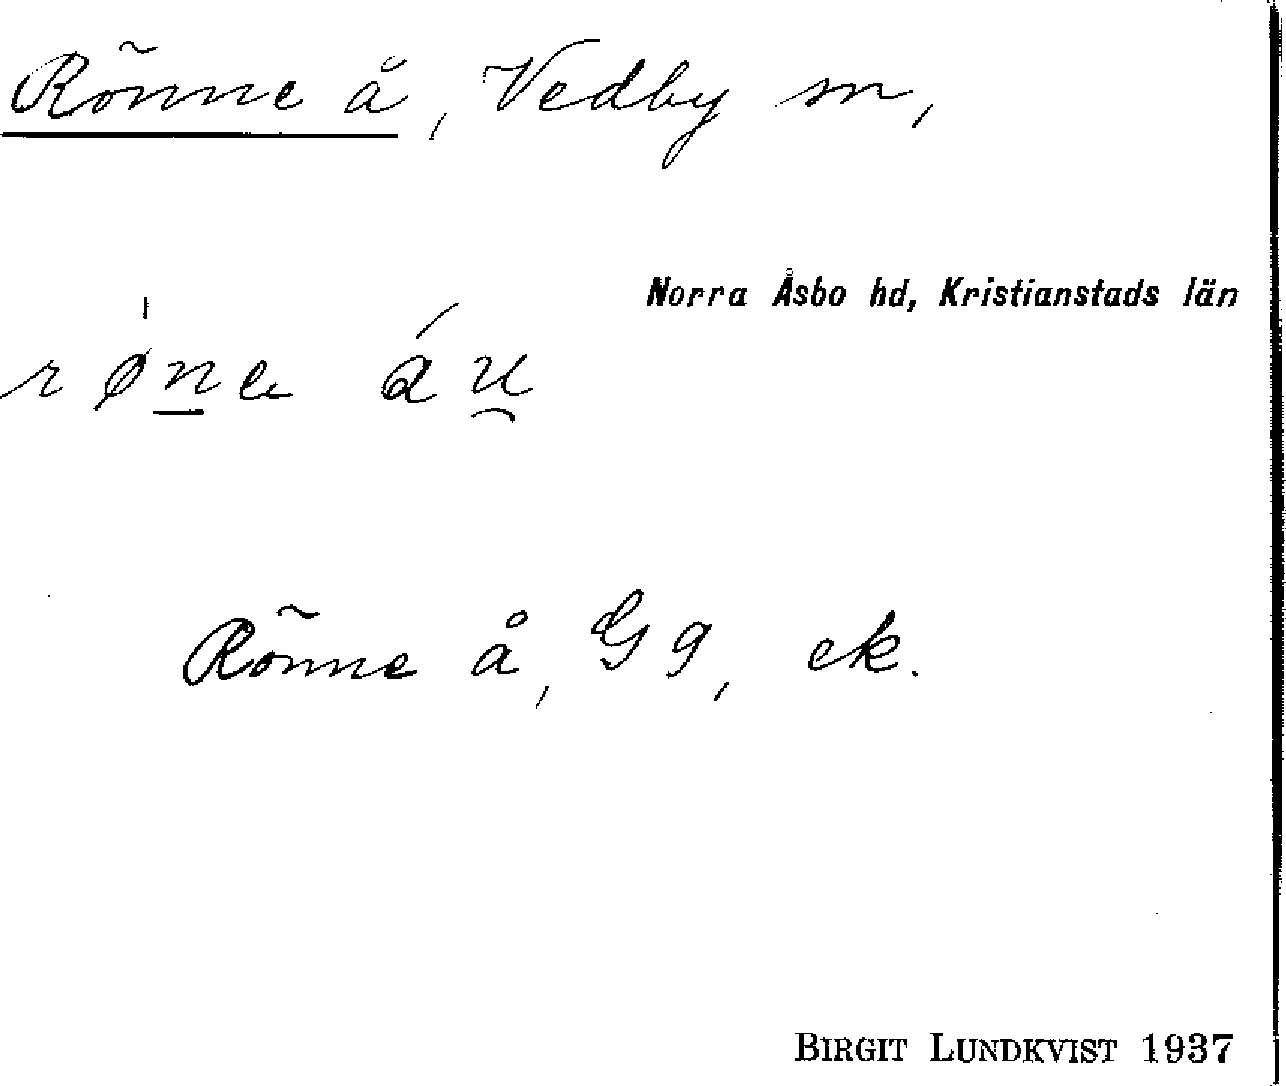 Rönne å, Vedby sn,
Norra Åsbo hd, Kristianstads län
rǿne áu̯
Rönne å, Gg, ek.
BIRGIT LUNDKVIST 1937